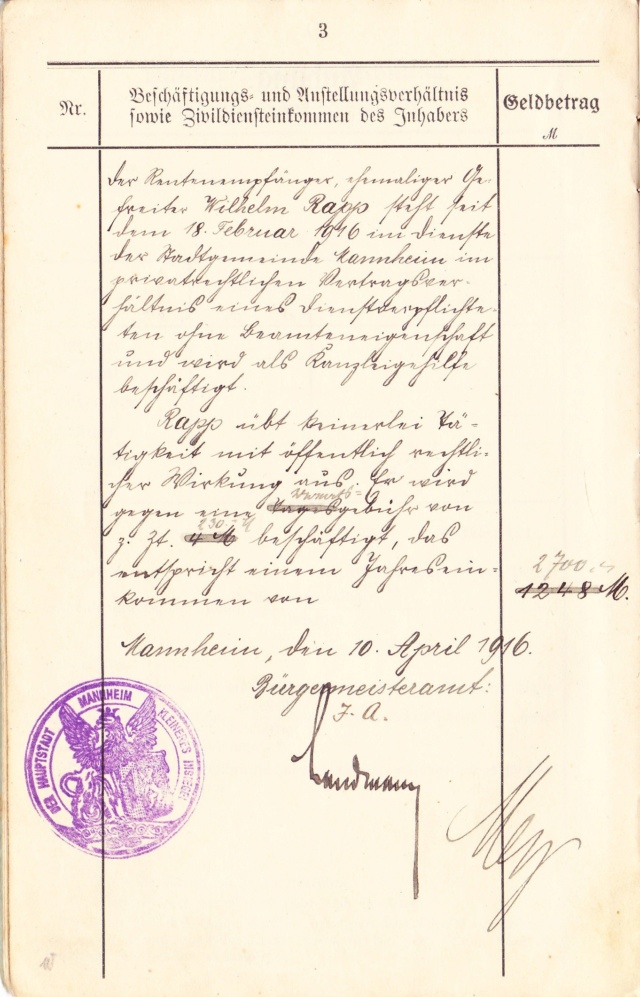 3
Nr.
Beschäftigungs- und Anstellungsverhältnis
sowie Zivildiensteinkommen des Inhabers
Geldbetrag
M
Der Rentenempfänger, ehemaliger Ge-
freiter Wilhelm Rapp steht seit
dem 18. Februar 1916 im Dienste
der Stadtgemeinde Mannheim im
privatrechtlichen Vertragsver-
hältnis eines Dienstverpflichte-
ten ohne Beamteneigenschaft
und wird als Kanzleigehilfe
beschäftigt.
Rapp übt keinerlei Tä-
tigkeit mit öffentlich rechtli-
cher Wirkung aus. Er wird
Monats-
gegen eine Tagesgebühr von
230.- M
z. Zt. 4 M beschäftigt, das
entspricht einem Jahresein-
2700.-
kommen von 1248 M.
Mannheim, den 10. April 1916.
Bürgermeisteramt:
J. A.
Landmann
DER HAUPTSTADT MANNHEIM KLEINERES